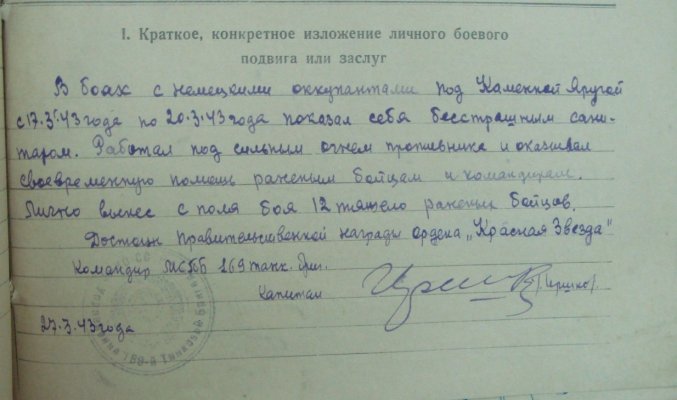 I. Краткое, конкретное изложение личного боевого
подвига или заслуг
В боях с немецкими оккупантами под Каменной Яругой
с 17.3.43 года по 20.3.43 года показал себя бесстрашным сани-
таром. Работал под сильным огнем противника и оказывал
своевременную помощь раненым бойцам и командирам.
Лично вынес с поля боя 12 тяжело раненых бойцов.
Достоин правительственной награды ордена „Красная Звезда"
Командир МСПБ 169 танк. бриг.
Капитан
27.3.43 года